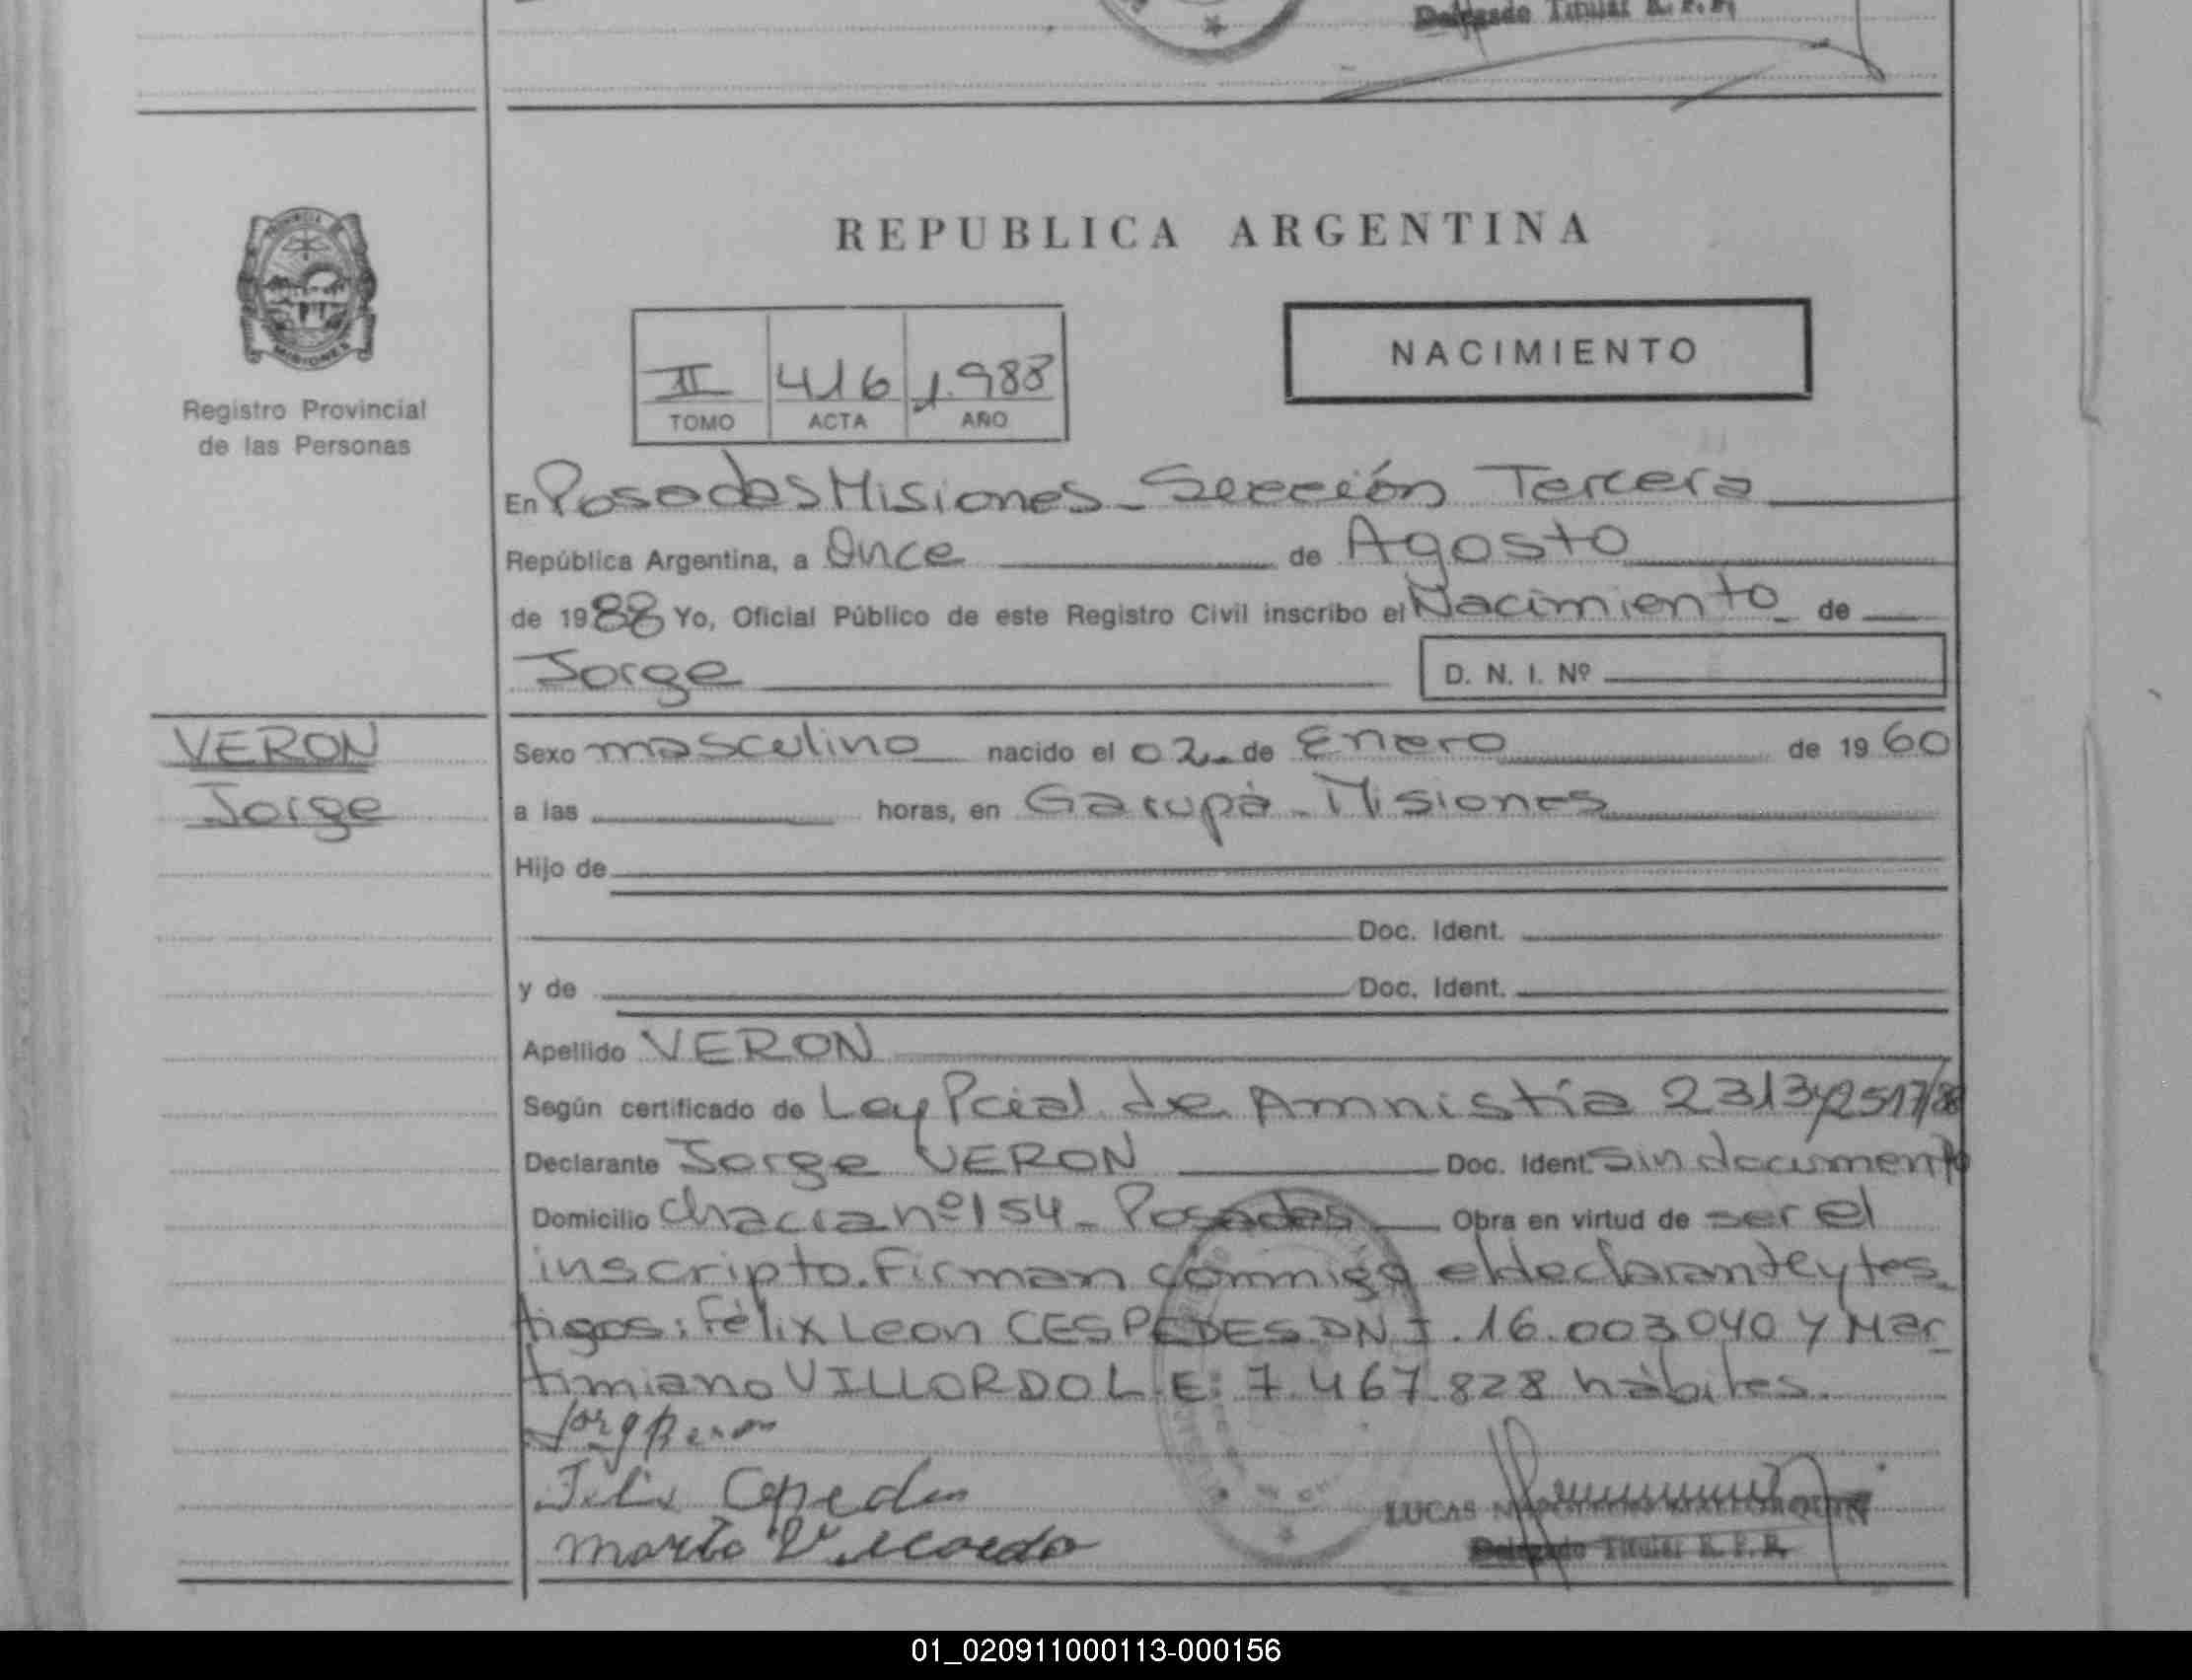 Delegado Titular R. P. P.
PROVINCIA
MISIONES
Registro Provincial
de las Personas
REPUBLICA ARGENTINA
NACIMIENTO
II 416 1.988
TOMO ACTA AÑO
En Posadas Misiones - Sección Tercera
República Argentina, a Once de Agosto
de 1988 Yo, Oficial Público de este Registro Civil inscribo el Nacimiento de
Jorge D. N. I. Nº
VERON
Jorge
Sexo masculino nacido el 02 de Enero de 1960
a las horas, en Garupá - Misiones
Hijo de
Doc. Ident.
y de Doc. Ident.
Apellido VERON
Según certificado de Ley Pcial de Amnistía 2313y2517/88
Declarante Jorge VERON Doc. Ident. Sin documento
Domicilio Chacra nº 154 - Posadas Obra en virtud de ser el
inscripto. Firman conmigo el declarante y tes
tigos: Félix Leon CESPEDES DNI. 16.003.040 y Mar
timiano VILLORDO L.E: 7.467.828 hábiles.
Felix Cepedes
LUCAS
Delegado Titular R. P. P.
01_020911000113-000156